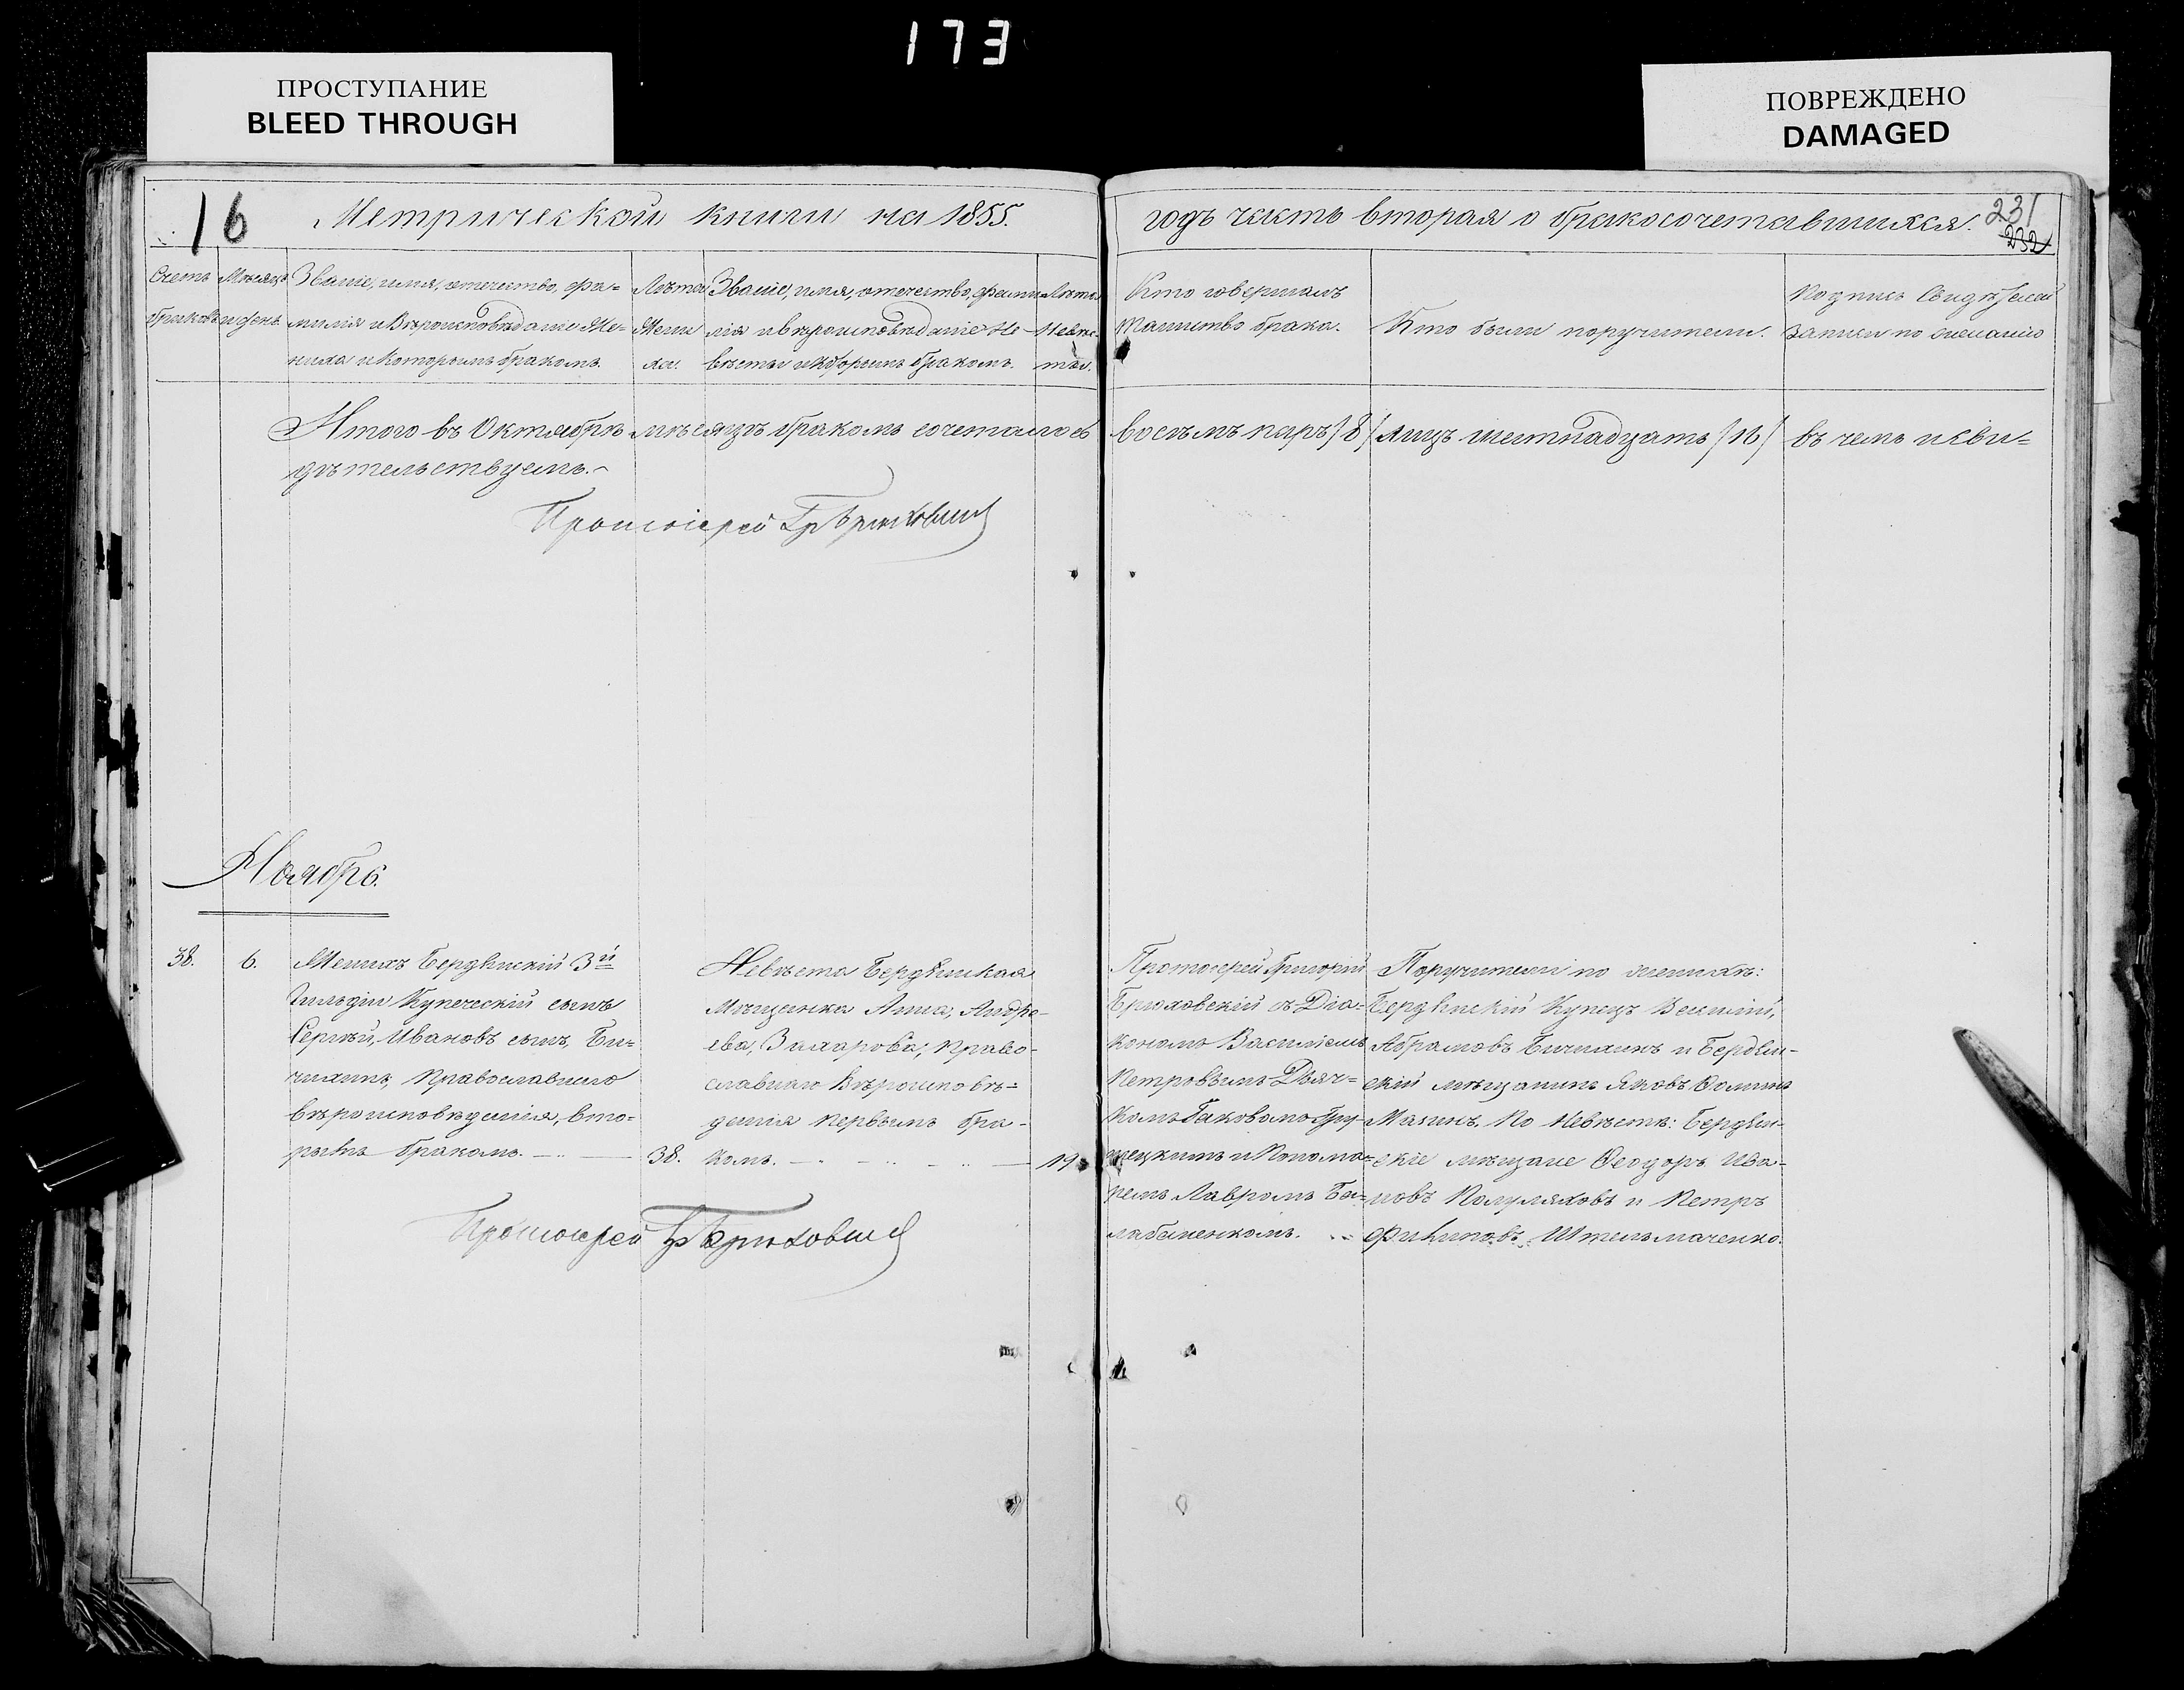 173
ПРОСТУПАНИЕ
BLEED THROUGH
ПОВРЕЖДЕНО
DAMAGED
16
Метрической книги на 1855.
годъ часть вторая о бракосочетавшихся.
231
232
Счетъ
браковъ
Мѣсяцъ
и день
Званіе, имя, отечество, фа=
милія и Вѣроисповѣданіе Же=
ниха и которымъ бракомъ.
Лѣта
Жени
ха.
Званіе, имя, отечество, фами
лія и вѣроисповѣданіе Не
вѣсты и которымъ бракомъ.
Лѣта
Невѣс
ты.
Кто совершалъ
таинство брака.
Кто были поручители.
Подпись Свидѣтелей
записи по желанію
Итого въ Октябрѣ мѣсяцѣ бракомъ сочеталось восемь паръ /8/ лицъ шестнадцать /16/ въ чемъ и сви=
дѣтельствуемъ.
Протоіерей Гр Брюховскій
Ноябрь.
38.
6.
Женихъ Бердянскій 3й
Гильдіи Купеческій сынъ
Сергѣй, Ивановъ сынъ, Би=
чихинъ, Православнаго
вѣроисповѣданія, вто=
рымъ бракомъ.
38.
Невѣста Бердянская
Мѣщанка Анна, Андре-
ева, Захарова, Право-
славнаго Вѣроисповѣ=
данія первымъ бра-
комъ.
19
Протоіерей Григорій
Брюховскій съ Діа=
кономъ Василіемъ
Петровымъ Дьяч=
комъ Іаковомъ Гру-
шецкимъ и Понома=
ремъ Лавромъ Ба=
лабаненкомъ.
Поручители по женихѣ:
Бердянскій Купецъ Василій,
Абрамовъ Бичихинъ и Бердян-
скій мѣщанинъ Яковъ Ѳоминъ
Мазинъ. По Невѣстѣ: Бердян-
скіе мѣщане Ѳеодоръ Ива-
новъ Полуляховъ и Петръ
Филиповъ Штельмаченко.
Протоіерей Гр Брюховскій